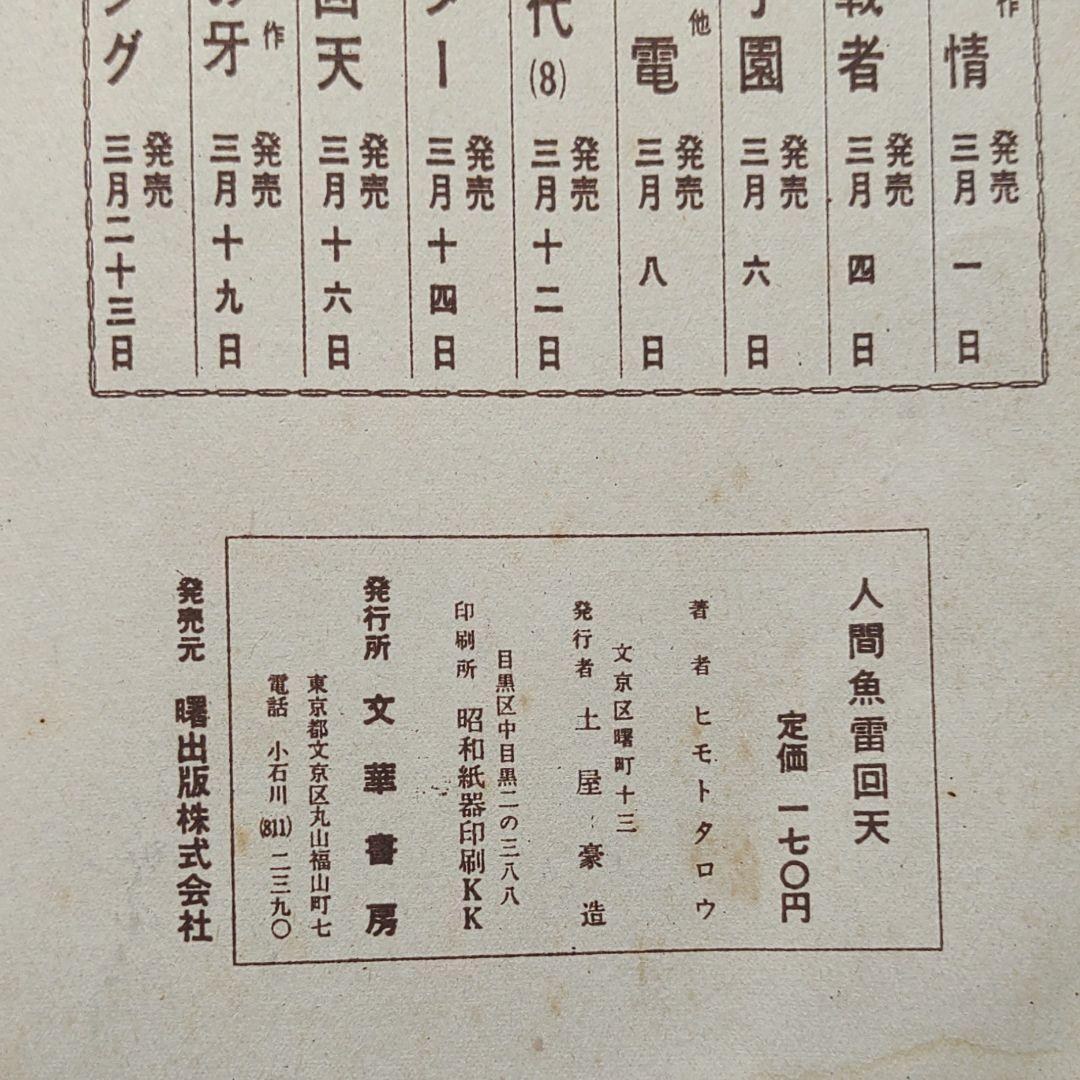 作
情
発売
三月一日
戦者
発売
三月四日
園
発売
三月六日
他
電
発売
三月八日
代(8)
発売
三月十二日
ター
発売
三月十四日
回天
発売
三月十六日
牙
作
発売
三月十九日
グ
発売
三月二十三日
人間魚雷回天
定価 一七〇円
著者 ヒモトタロウ
文京区曙町十三
発行者 土屋豪造
目黒区中目黒二の三八八
印刷所 昭和紙器印刷KK
発行所 文華書房
東京都文京区丸山福山町七
電話 小石川(811)二三九〇
発売元 曙出版株式会社